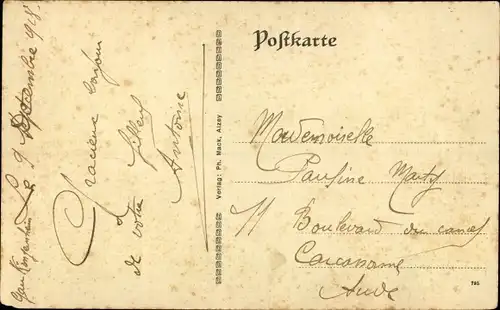 Le 9 Septembre 1918
Gracieux bonjour
de votre filleul
Antoine
Verlag: Ph. Mack, Alzey
Postkarte
Mademoiselle
Pauline Marty
11 Boulevard du canal
Carcassonne
Aude
785